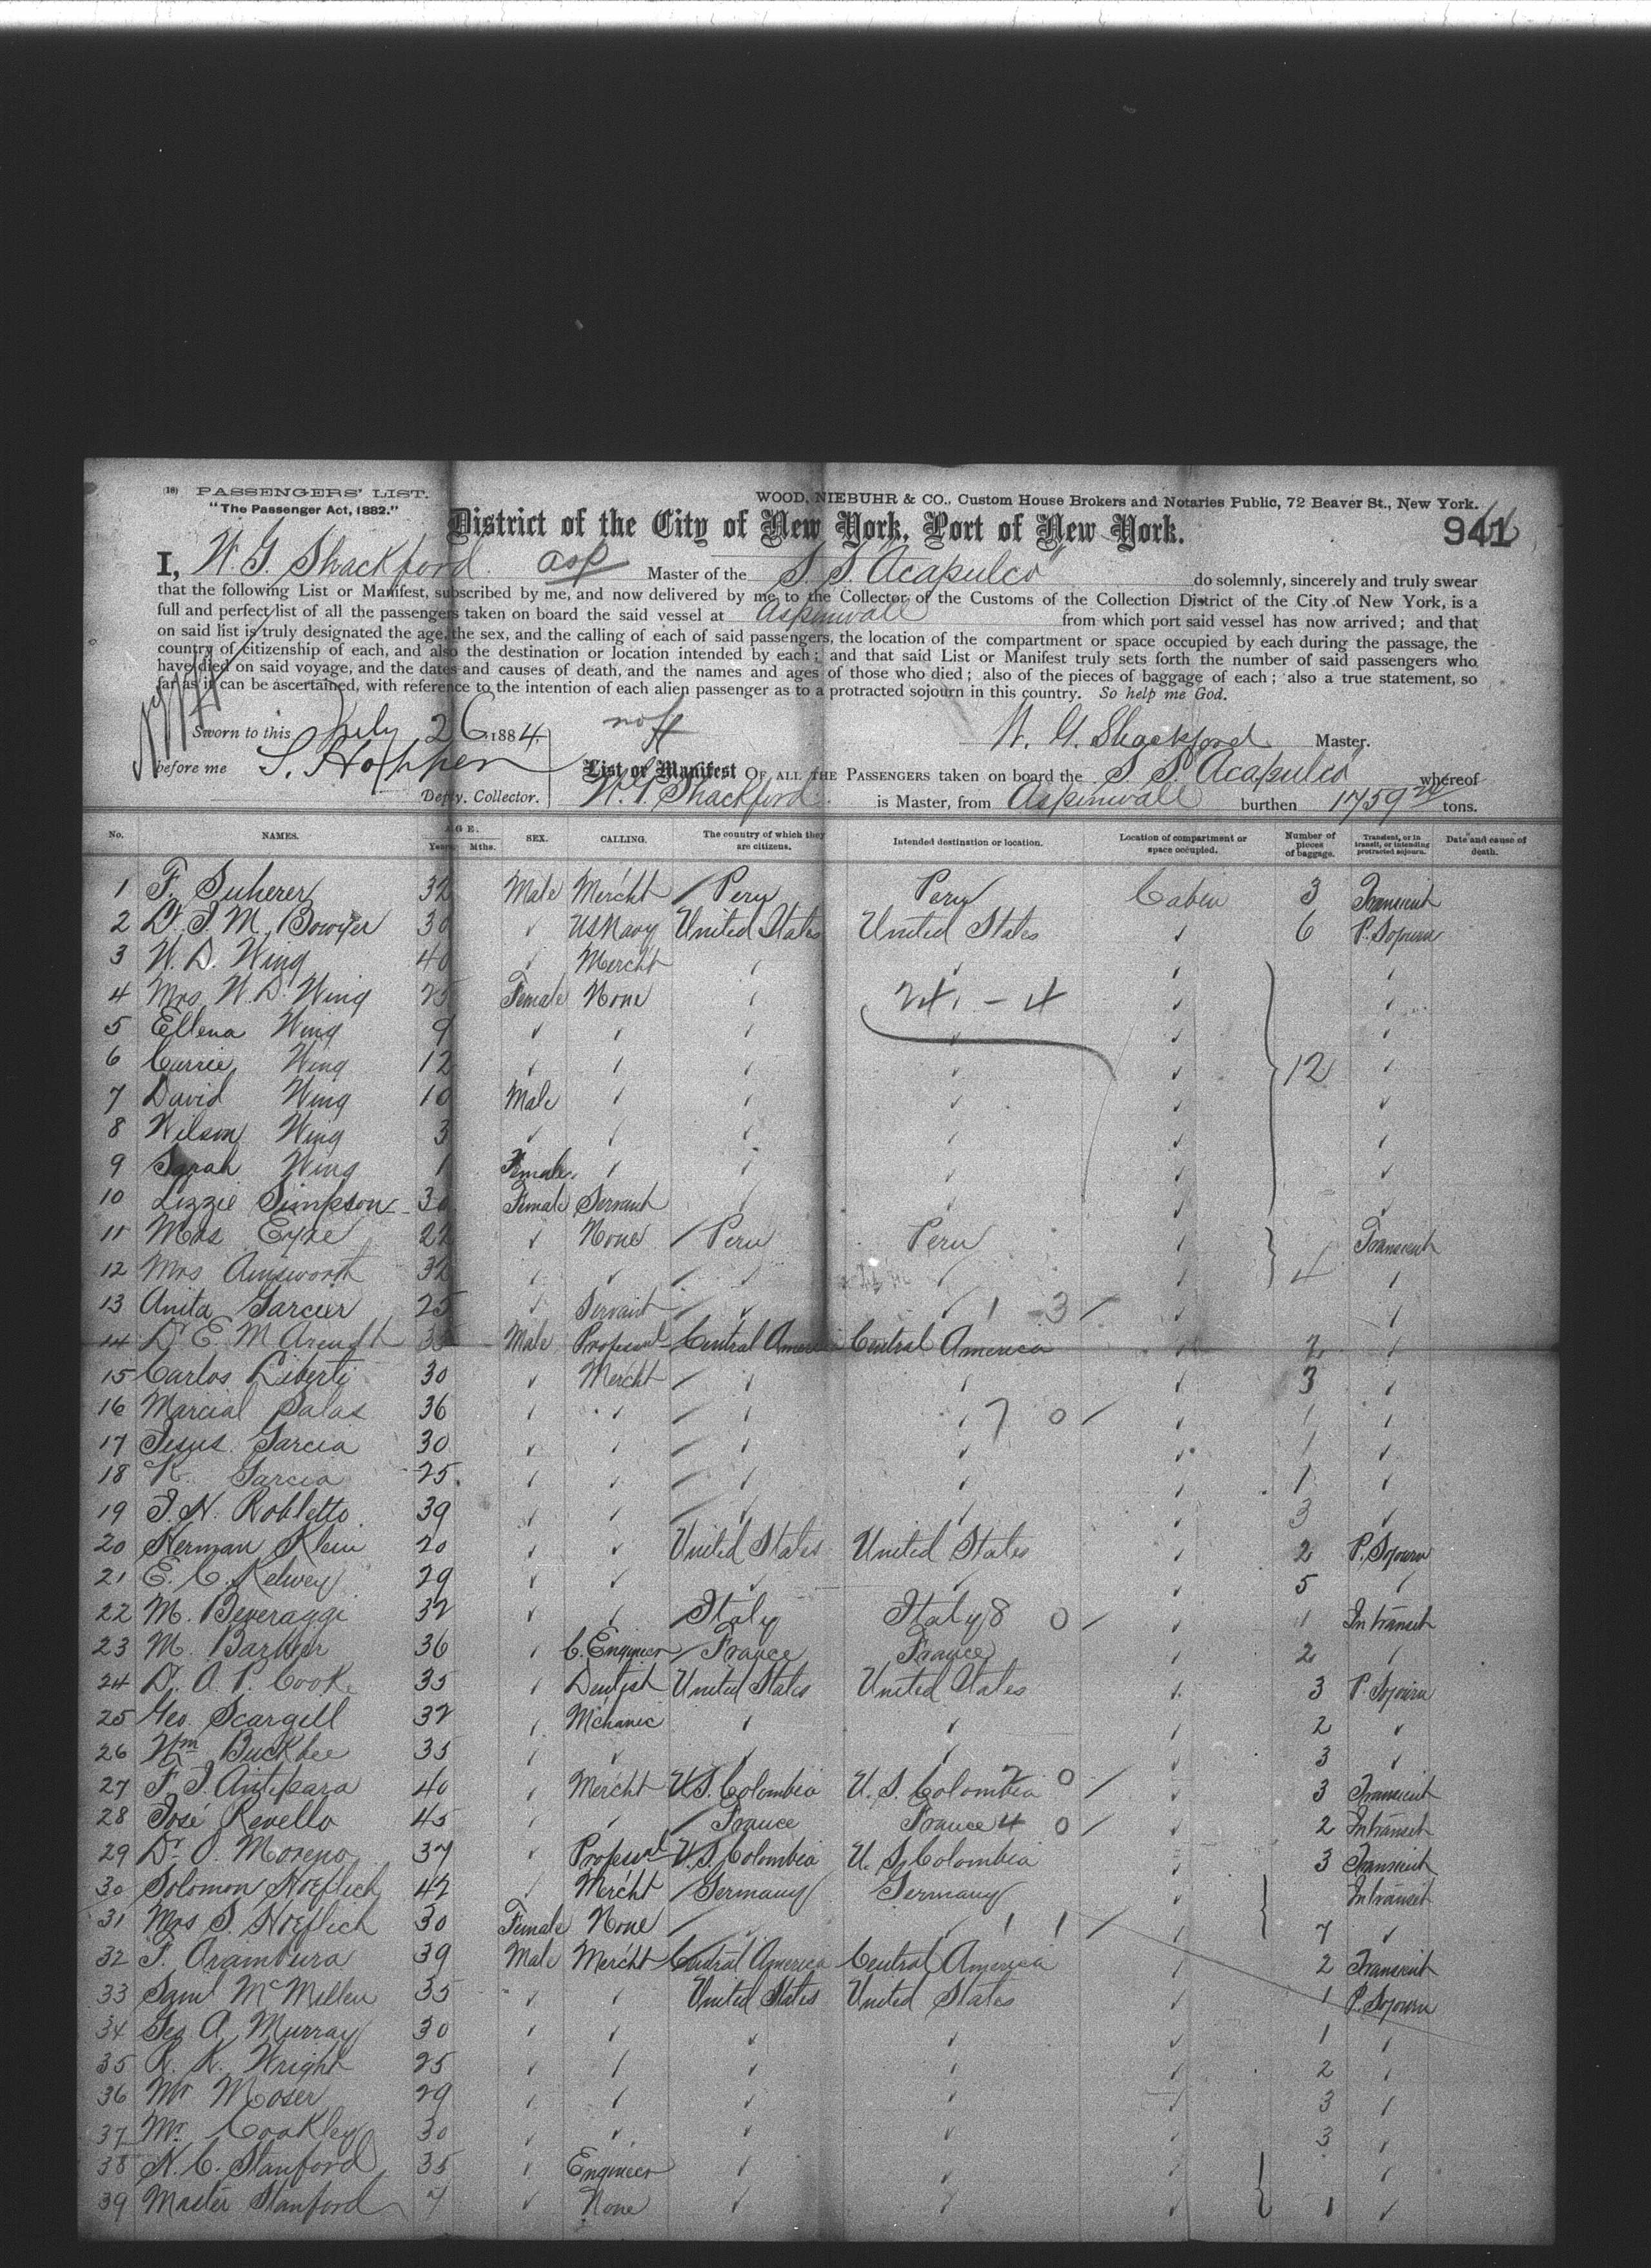 (18) PASSENGERS' LIST.
"The Passenger Act, 1882."
WOOD, NIEBUHR & CO., Custom House Brokers and Notaries Public, 72 Beaver St., New York.
District of the City of New York, Port of New York.
941
I, W. G. Shackford asp Master of the S. S. Acapulco do solemnly, sincerely and truly swear
that the following List or Manifest, subscribed by me, and now delivered by me to the Collector of the Customs of the Collection District of the City of New York, is a
full and perfect list of all the passengers taken on board the said vessel at Aspinwall from which port said vessel has now arrived; and that
on said list is truly designated the age, the sex, and the calling of each of said passengers, the location of the compartment or space occupied by each during the passage, the
country of citizenship of each, and also the destination or location intended by each; and that said List or Manifest truly sets forth the number of said passengers who
have died on said voyage, and the dates and causes of death, and the names and ages of those who died; also of the pieces of baggage of each; also a true statement, so
far as it can be ascertained, with reference to the intention of each alien passenger as to a protracted sojourn in this country. So help me God.
Sworn to this July 26 1884
W. G. Shackford Master.
before me S. Hopper
Depty. Collector.
List or Manifest OF ALL THE PASSENGERS taken on board the S. S. Acapulco whereof
W. G. Shackford is Master, from Aspinwall burthen 1759 tons.
No. NAMES. AGE. Years. Mths. SEX. CALLING. The country of which they are citizens. Intended destination or location. Location of compartment or space occupied. Number of pieces of baggage. Transient, or in transit, or intending protracted sojourn. Date and cause of death.
1 F. Suherer 32 Male Mercht Peru Peru Cabin 3 Transient
2 D. J. M. Bowyer 30 ✓ US Navy United States United States ✓ 6 P. Sojourn
3 W. D. Wing 40 ✓ Mercht ✓ ✓ ✓ ✓
4 Mrs W. D. Wing 25 Female None ✓ 24 - 4 ✓ ✓
5 Ellena Wing 9 ✓ ✓ ✓ ✓ ✓ ✓
6 Carrie Wing 12 ✓ ✓ ✓ ✓ ✓ 12 ✓
7 David Wing 10 Male ✓ ✓ ✓ ✓ ✓
8 Wilson Wing 3 ✓ ✓ ✓ ✓ ✓ ✓
9 Sarah Wing 1 Female ✓ ✓ ✓ ✓ ✓
10 Lizzie Simpson 30 Female Servant ✓ ✓ ✓ ✓
11 Mrs Eyre 22 ✓ None Peru Peru ✓ Transient
12 Mrs Ainsworth 32 ✓ ✓ ✓ ✓ ✓ 4 ✓
13 Anita Garcier 25 ✓ Servant ✓ ✓ 1 - 3 ✓ ✓
14 Dr E. M. Arendt 35 Male Central America Central America ✓ 2 ✓
15 Carlos Liberti 30 ✓ Mercht ✓ ✓ ✓ 3 ✓
16 Marcial Salas 36 ✓ ✓ ✓ ✓ 7 0 ✓ 1 ✓
17 Jesus Garcia 30 ✓ ✓ ✓ ✓ ✓ 1 ✓
18 K. Garcia 25 ✓ ✓ ✓ ✓ ✓ 1 ✓
19 J. N. Robletto 39 ✓ ✓ ✓ ✓ ✓ 3 ✓
20 Herman Klein 20 ✓ ✓ United States United States ✓ 2 P. Sojourn
21 E. C. Kelwey 29 ✓ ✓ ✓ ✓ ✓ 5 ✓
22 M. Beveraggi 32 ✓ ✓ Italy Italy 8 0 ✓ 1 In transit
23 M. Barbier 36 ✓ C. Engineer France France ✓ 2 ✓
24 Dr. A. P. Cooke 35 ✓ Dentist United States United States ✓ 3 P. Sojourn
25 Geo. Scargell 32 ✓ Mchanic ✓ ✓ ✓ 2 ✓
26 Wm Buckbee 35 ✓ ✓ ✓ ✓ ✓ 3 ✓
27 F. J. Antipara 40 ✓ Mercht U.S. Colombia U.S. Colombia 2 0 ✓ 3 Transient
28 José Revello 45 ✓ ✓ France France 4 0 ✓ 2 In transit
29 Dr. O. Moreno 37 ✓ U.S. Colombia U.S. Colombia ✓ 3 Transient
30 Solomon Hoeflich 42 ✓ Mercht Germany Germany ✓ In transit
31 Mrs S. Hoeflich 30 Female None ✓ ✓ 1 1 ✓ 7 ✓
32 F. Aramburu 39 Male Mercht Central America Central America ✓ 2 Transient
33 Saml McMillen 35 ✓ ✓ United States United States ✓ 1 P. Sojourn
34 Geo A. Murray 30 ✓ ✓ ✓ ✓ ✓ 1 ✓
35 R. K. Wright 25 ✓ ✓ ✓ ✓ ✓ 2 ✓
36 Mr Moser 29 ✓ ✓ ✓ ✓ ✓ 3 ✓
37 Mr. Coakley 30 ✓ ✓ ✓ ✓ ✓ 3 ✓
38 N. C. Stanford 35 ✓ Engineer ✓ ✓ ✓ ✓
39 Master Stanford 7 ✓ None ✓ ✓ ✓ 1 ✓